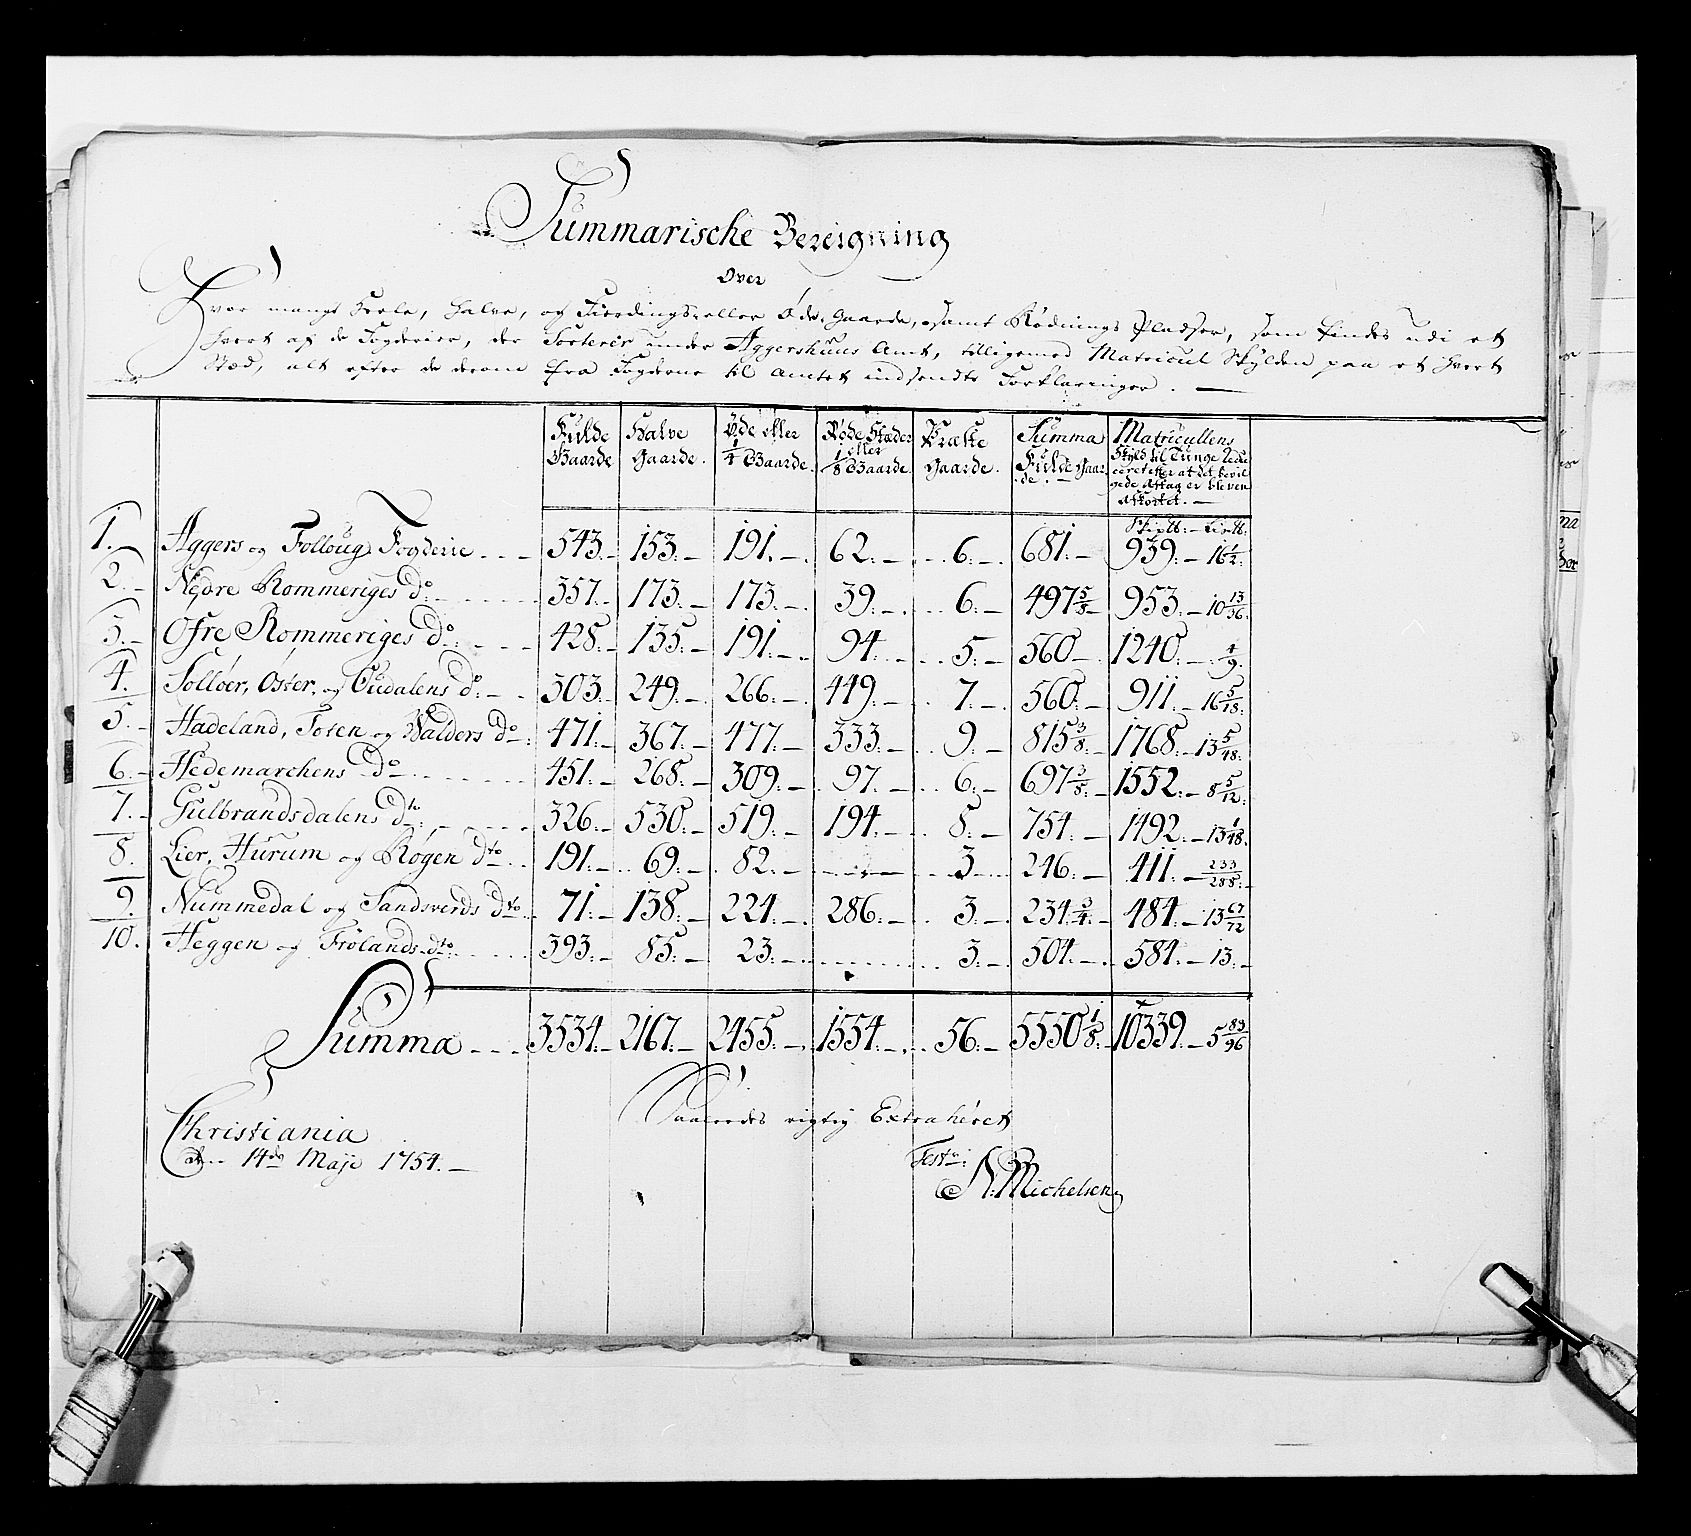 Summarische Bereigning
Over
Hvor mange Heele, Halve, og Fierdings eller Øde Gaarde, samt Rødnings Pladser, som findes udi et
hvert af de Fogderier, der Sorterer under Aggershuus Amt, tilligemed Matricul Skylden paa et hvert
Sted, alt efter de derom fra Fogderne til Amtet indsendte Forklaringer. —
Fulde Gaarde | Halve Gaarde. | Øde eller 1/4 Gaarde. | Røde Stæder eller 1/8 Gaarde. | Præste Gaarde. | Summa Fulde Gaarde. — | Matricullens Skyld til Tunge redu ceret efter at det bevil gede Aftag er bleven afkortet. —
Skiplb: — Lislb:
1. — Aggers og Follough Fogderie 543. — 153. — 191. — 62. — 6. — 681. — 939. — 16 1/2.
2. — Nedre Rommeriges Do: 357. — 173. — 173. — 39. — 6. — 497 5/8 — 953. — 10 13/36.
3. — Øfre Rommeriges do: 428. — 135. — 191. — 94. — 5. — 560 — 1240. — 4/9.
4. Solløer, Øster, og Oudalens do: — 303. 249. — 266. — 449. — 7. — 560. — 911. — 16 5/18.
5. — Hadeland, Toten og Walders Do 471. — 367. — 477. — 333. — 9. — 815 3/8. — 1768. — 13 5/48.
6. — Hedemarchens Do 451. — 268. — 309. — 97. — 6. — 697 3/8. — 1552. — 8 5/12.
7. — Gulbrandsdalens dto: 326. — 530. — 519. — 194. — 8. — 754. — 1492. — 13 1/48.
8. Lier, Hurum og Røgen dto 191. — 69. — 82. — 3 246. — 411. — 233/288. —
9. Nummedal og Sandsverds dto 71. — 138. — 224. — 286. — 3. — 234 3/4. — 484. — 13 67/72
10. Heggen og Frølands dto: 393. — 85. — 23. — 3. — 504. — 584. — 13. —
Summa 3534. — 2167. — 2455. — 1554. — 56. — 5550 1/8. — 10339. — 5 83/96
Saaledes rigtig Extraheret
Christiania
d. 14de Maje 1754. —
Test:
N: Michelsen